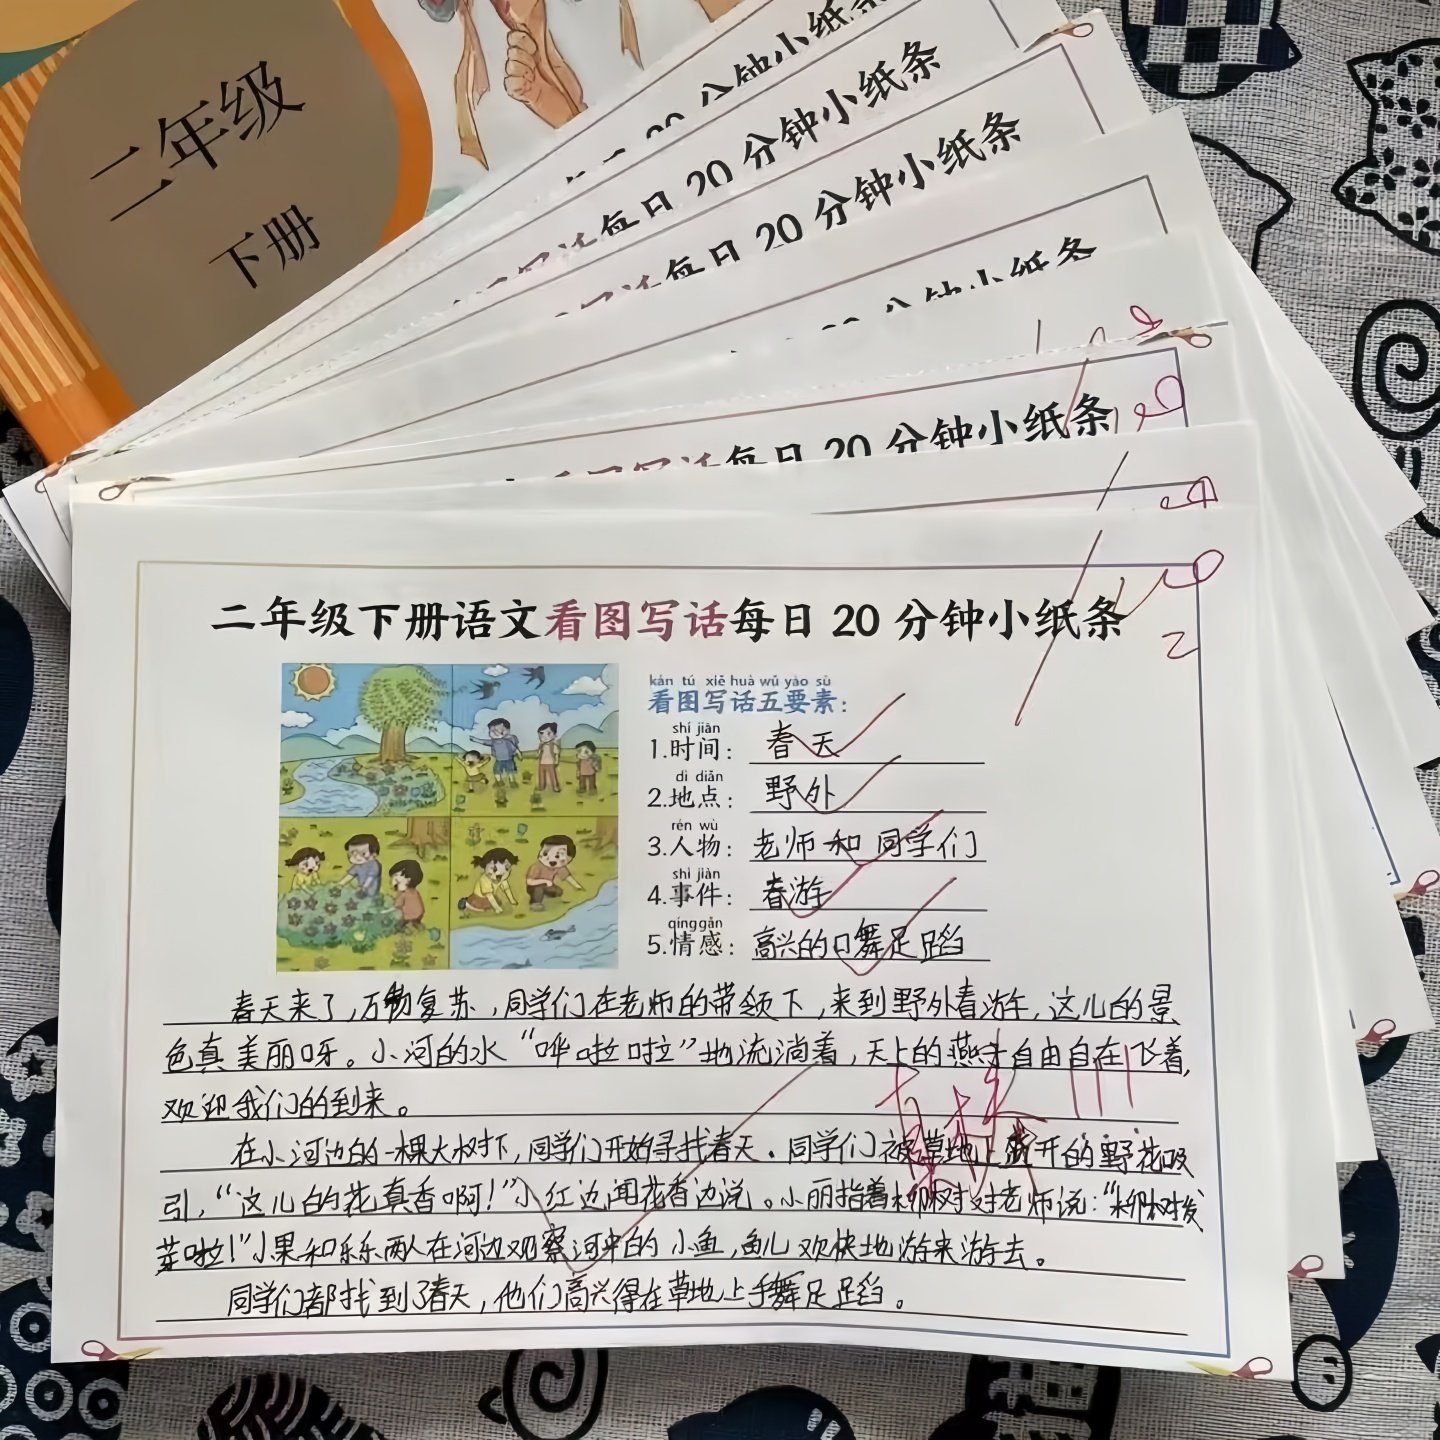 二年级
下册
分钟小纸条
每日 20 分钟小纸条
写话每日 20 分钟小纸条
20 分钟小纸条
看图写话每日 20 分钟小纸条
二年级下册语文看图写话每日 20 分钟小纸条
kán tú xiě huà wǔ yào sù
看图写话五要素：
shí jiàn
1.时间： 春天
dì diǎn
2.地点： 野外
rén wù
3.人物： 老师和同学们
shì jiàn
4.事件： 春游
qíng gǎn
5.情感： 高兴的口舞足蹈
春天来了，万物复苏，同学们在老师的带领下，来到野外春游，这儿的景
色真美丽呀。小河的水“哗啦啦”地流淌着，天上的燕子自由自在飞着，
欢迎我们的到来。
在小河边的一棵大树下，同学们开始寻找春天。同学们被草地上盛开的野花吸
引，“这儿的花真香啊！”小红边闻花香边说。小丽指着柳树对老师说：“柳树发
芽啦！”小果和乐乐两人在河边观察河中的小鱼，鱼儿欢快地游来游去。
同学们都找到了春天，他们高兴得在草地上手舞足蹈。